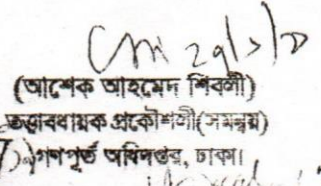 ২৭/১/১০
(আশেক আহমেদ শিবলী)
তত্ত্বাবধায়ক প্রকৌশলী(সমন্বয়)
গণপূর্ত অধিদপ্তর, ঢাকা।